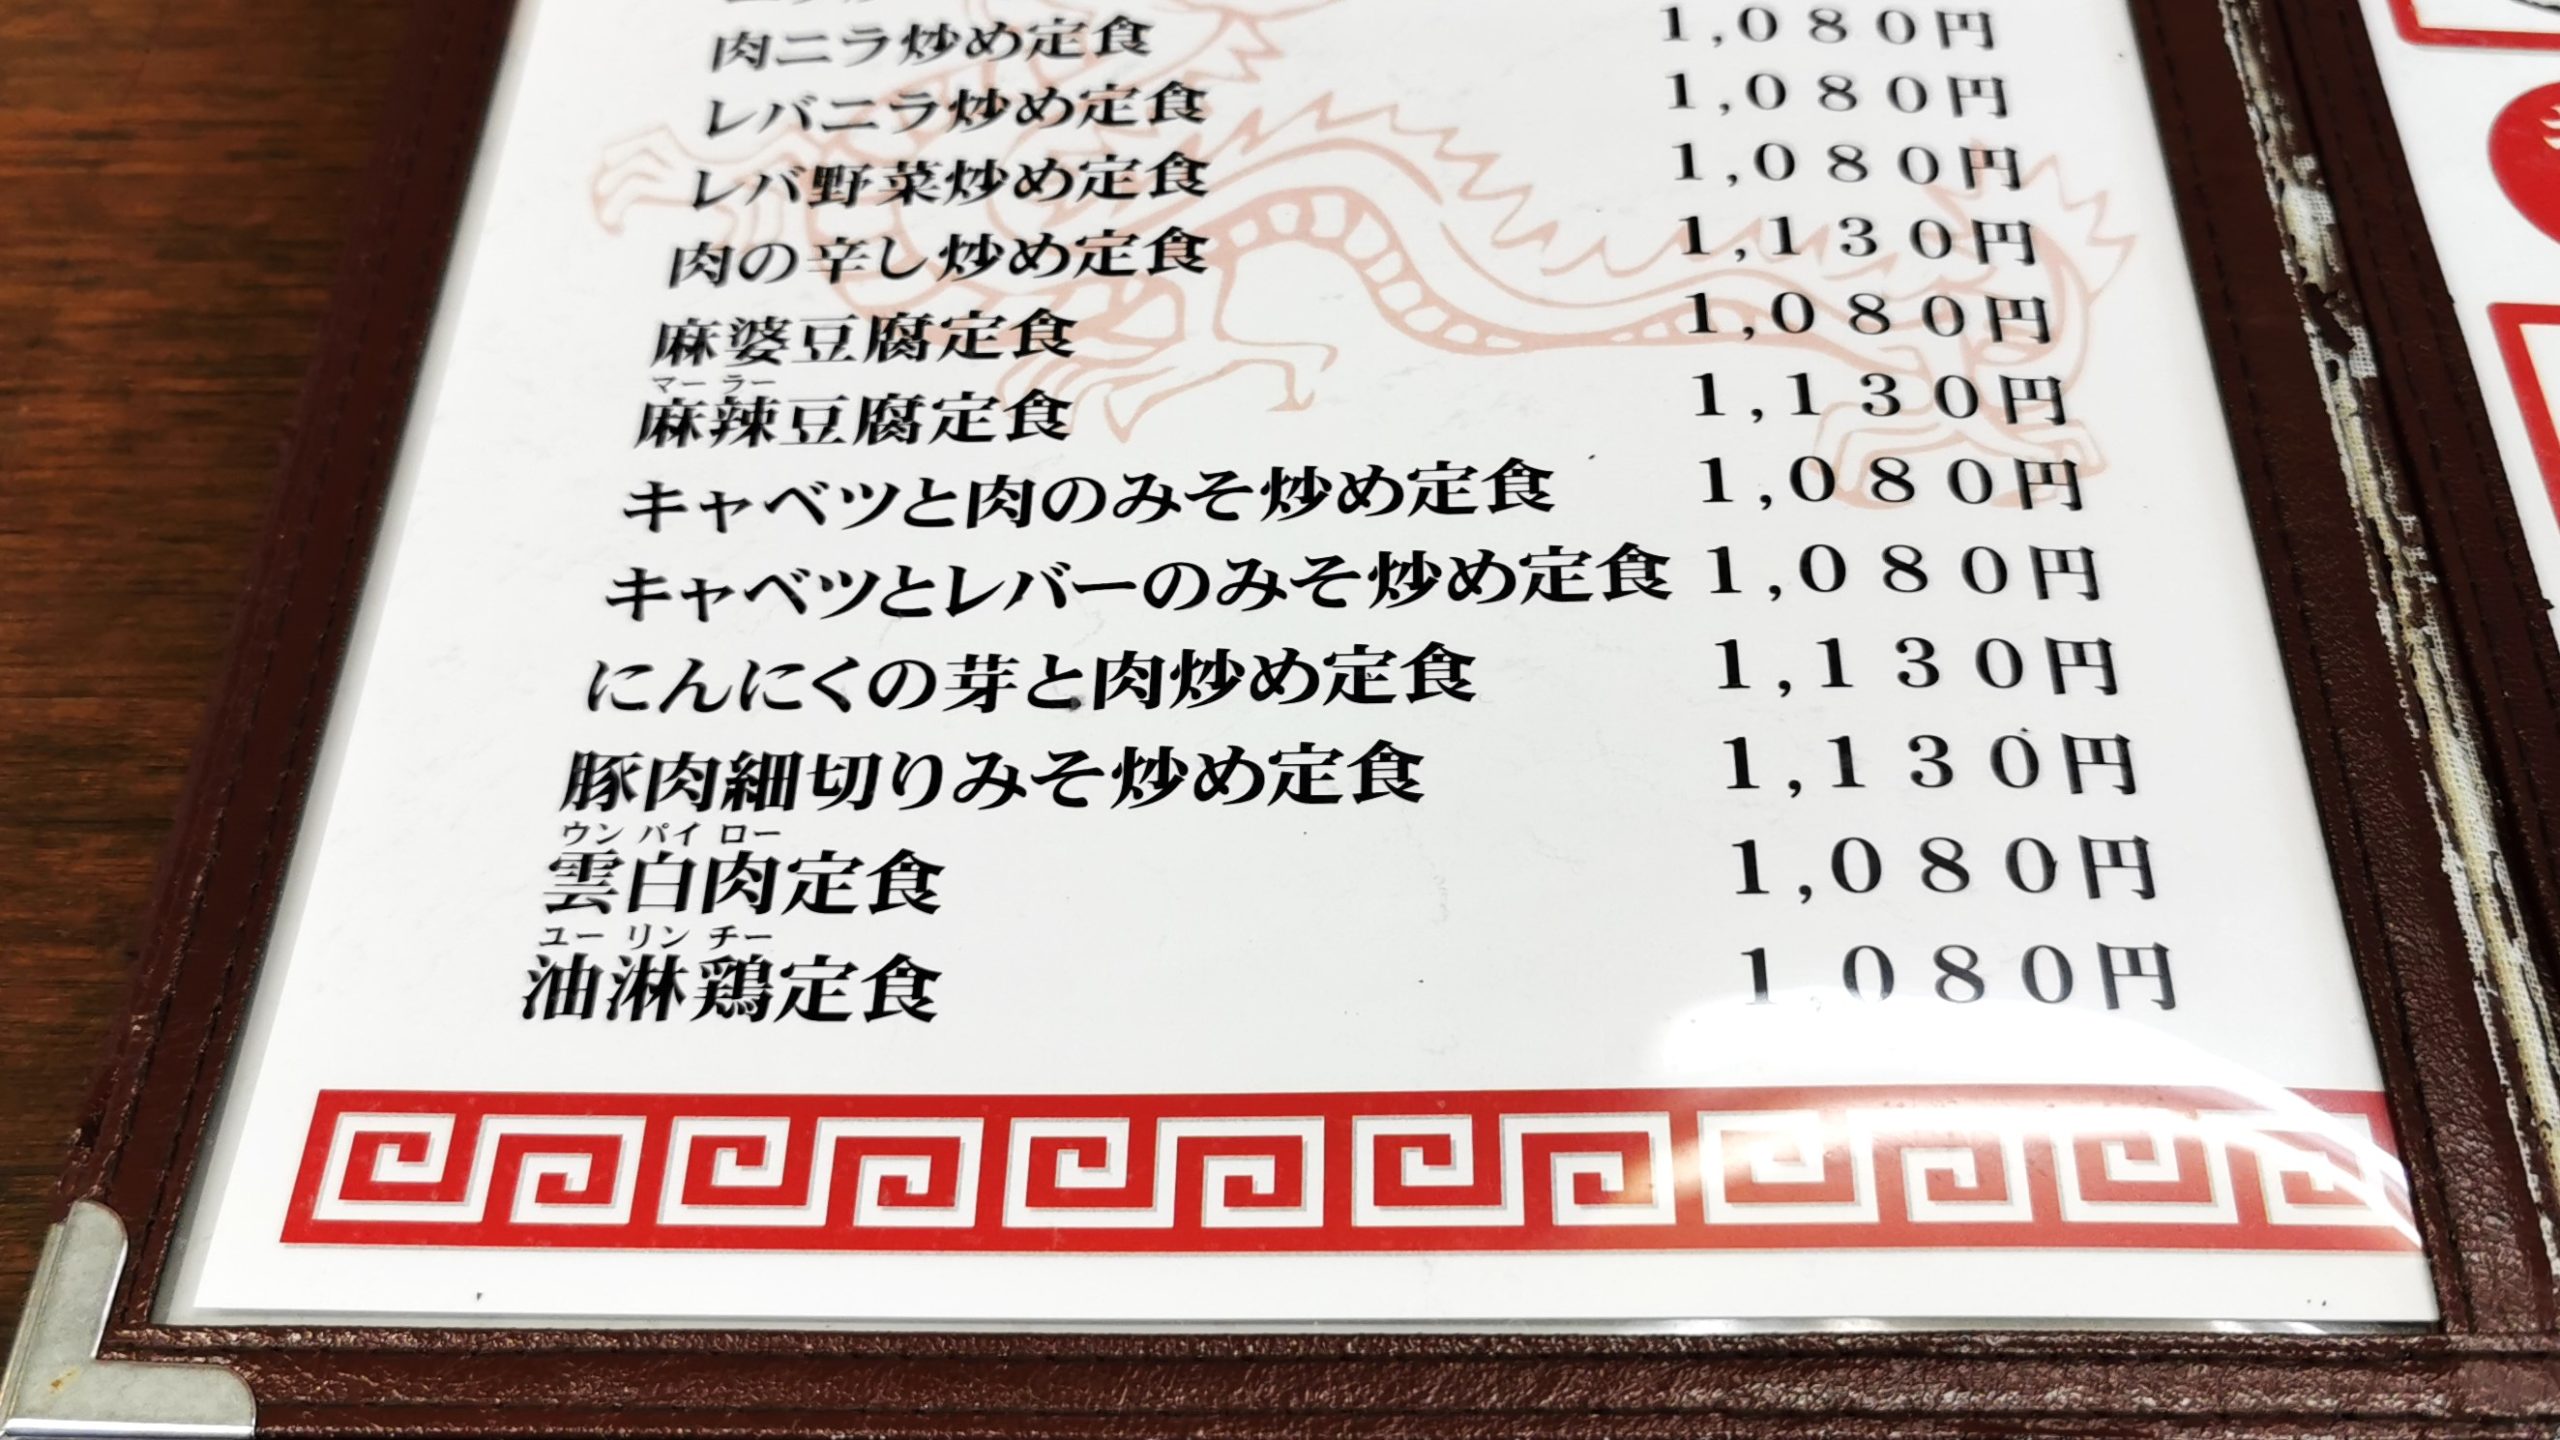 肉ニラ炒め定食 1,080円
レバニラ炒め定食 1,080円
レバ野菜炒め定食 1,080円
肉の辛し炒め定食 1,130円
麻婆豆腐定食 1,080円
マー ラー
麻辣豆腐定食 1,130円
キャベツと肉のみそ炒め定食 1,080円
キャベツとレバーのみそ炒め定食 1,080円
にんにくの芽と肉炒め定食 1,130円
豚肉細切りみそ炒め定食 1,130円
ウン パイ ロー
雲白肉定食 1,080円
ユー リン チー
油淋鶏定食 1,080円